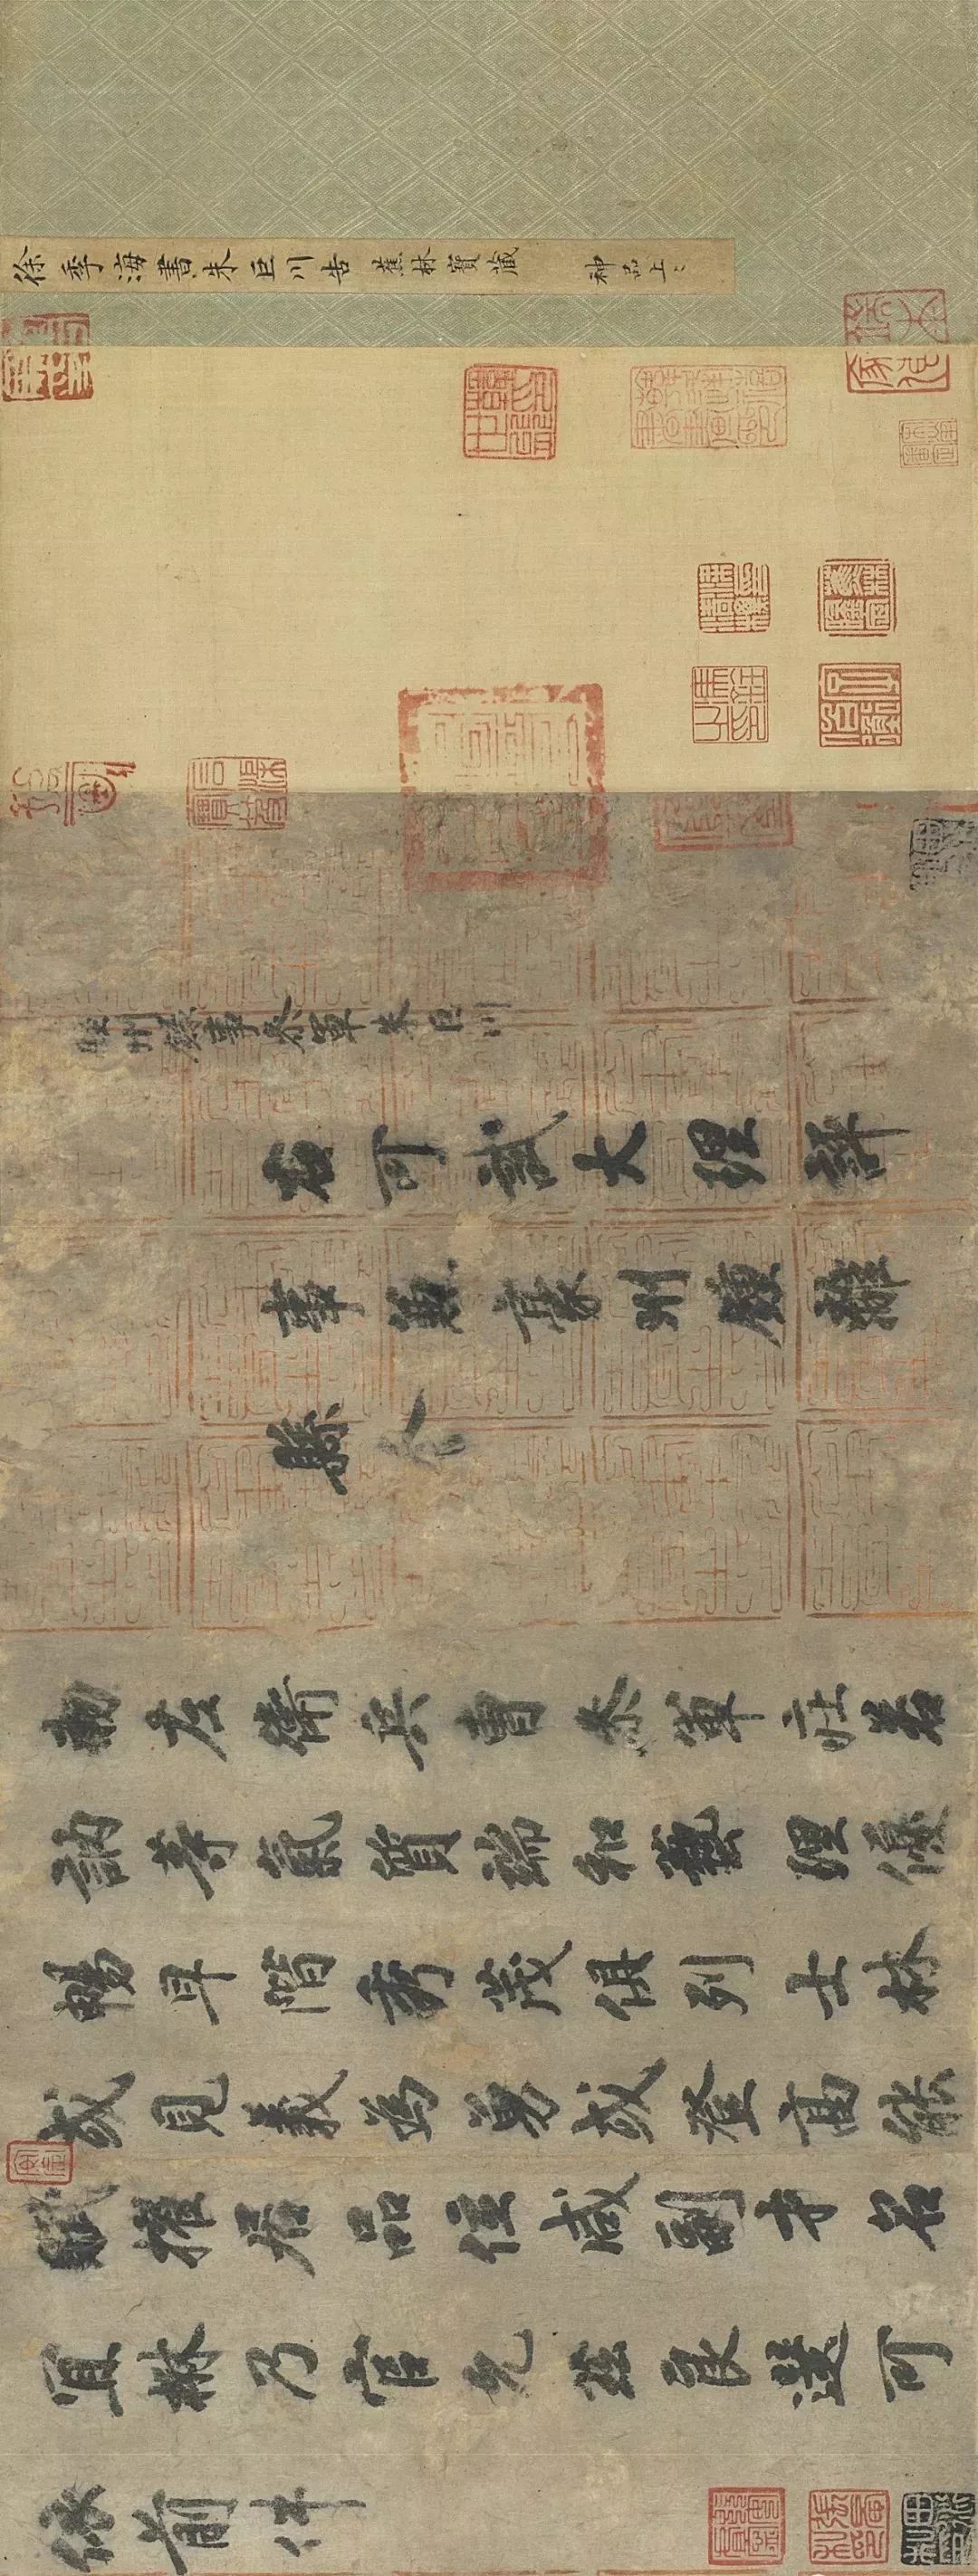 徐季海書朱巨川告 蕉林寶藏 神品上上
睦州録事參軍朱巨川
右可試大理評
事兼豪州鍾離
縣令
勑左衛兵曹參軍莊若
訥等氣質端和藝理優
暢早階秀茂俱列士林
或見義為勇或登高能
賦擢居品位咸副才名
宜楙乃官允茲良選可
依前件